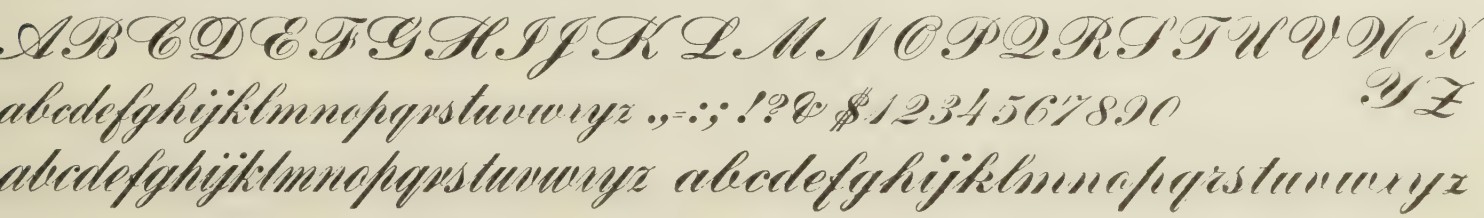 A B C D E F G H I J K L M N O P Q R S T U V W X
Y Z
abcdefghijklmnopqrstuvwxyz .,-:; !?& $1234567890
abcdefghijklmnopqrstuvwxyz abcdefghijklmnopqrstuvwxyz